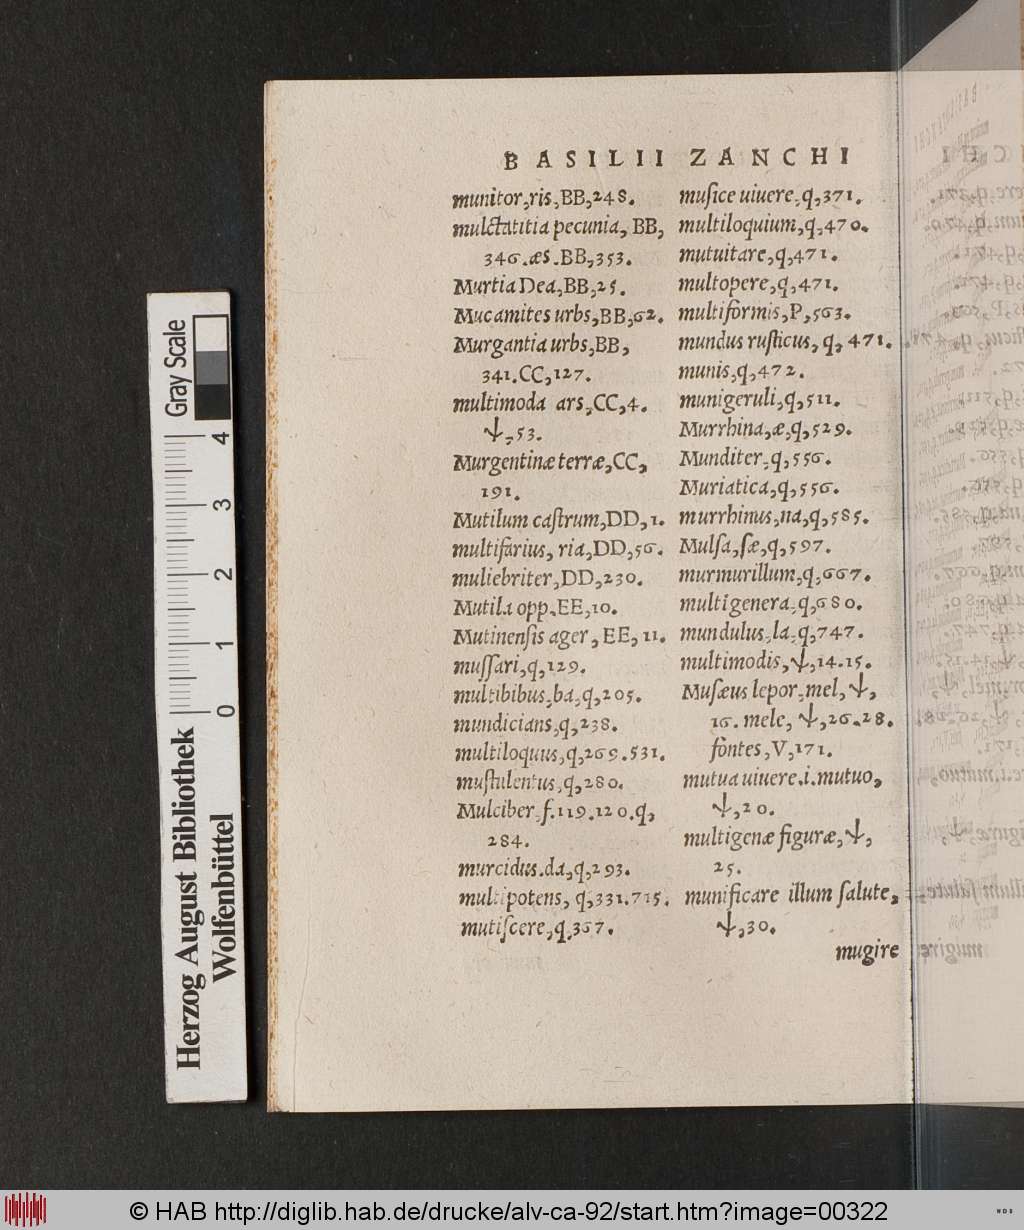 BASILII ZANCHI
munitor,ris,BB,248.
mulctatitia pecunia, BB,
346.æs.BB,353.
Murtia Dea,BB,25.
Mucamites urbs,BB,62.
Murgantia urbs,BB,
341.CC,127.
multimoda ars,CC,4.
ↆ,53.
Murgentinæ terræ,CC,
191.
Mutilum caſtrum,DD,1.
multifarius, ria,DD,56.
muliebriter,DD,230.
Mutila opp.EE,10.
Mutinenſis ager, EE, 11.
muſſari,q,129.
multibibus,ba,q,205.
mundicians,q,238.
multiloquus,q,269.531.
muſtulentus,q,280.
Mulciber,f.119.120.q,
284.
murcidus.da,q,293.
multipotens, q,331.715.
mutiſcere,q,367.
muſice uiuere,q,371.
multiloquium,q,470.
mutuitare,q,471.
multopere,q,471.
multiformis,P,563.
mundus ruſticus, q, 471.
munis,q,472.
munigeruli,q,511.
Murrhina,æ,q,529.
Munditer,q,556.
Muriatica,q,556.
murrhinus,na,q,585.
Mulſa,ſæ,q,597.
murmurillum,q,667.
multigenera,q,680.
mundulus,la,q,747.
multimodis,ↆ,14.15.
Muſæus lepor,mel,ↆ,
16. mele, ↆ,26.28.
fontes,V,171.
mutua uiuere.i.mutuo,
ↆ,20.
multigenæ figuræ,ↆ,
25.
munificare illum ſalute,
ↆ,30.
mugire
Herzog August Bibliothek
Wolfenbüttel
0 1 2 3 4
Gray Scale
© HAB http://diglib.hab.de/drucke/alv-ca-92/start.htm?image=00322